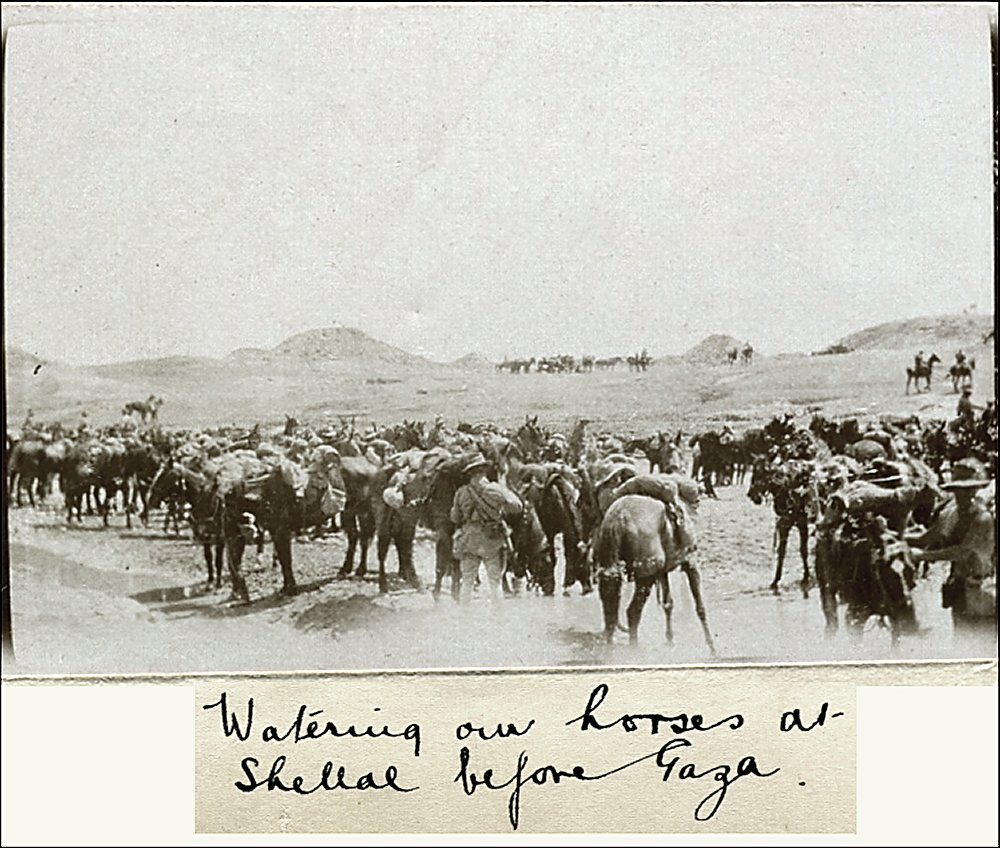 Watering our horses at
Shellal before Gaza.